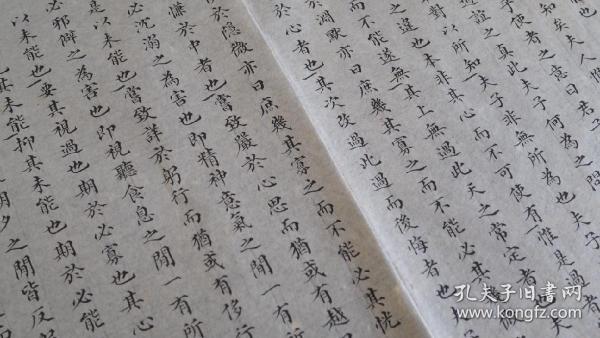 知矣夫人
子使者之意曰君子
之真此夫子何為之問
對以所知夫子非無所為也夫子
之選也本非其心而不可使有惟是過者
而不能遂無其上無過此天之常定者也
於淵歟亦曰庶幾其寡之而不能必其
於心者也其次改過此過而後悔者也
於隱微亦曰庶幾其寡之而不能必其恍
謙於中者也嘗致嚴於心思而猶或有越
必沉溺之為害也即精神意氣之間一有所
是以未能也嘗致詳於躬行而猶或有侈行
必邪僻之為害也即視聽食息之間一有所
以未能也要其視過也期於必寡也其心
其未能抑其未能也期於必能
夕之間皆反
孔夫子旧书网
www.kongfz.com